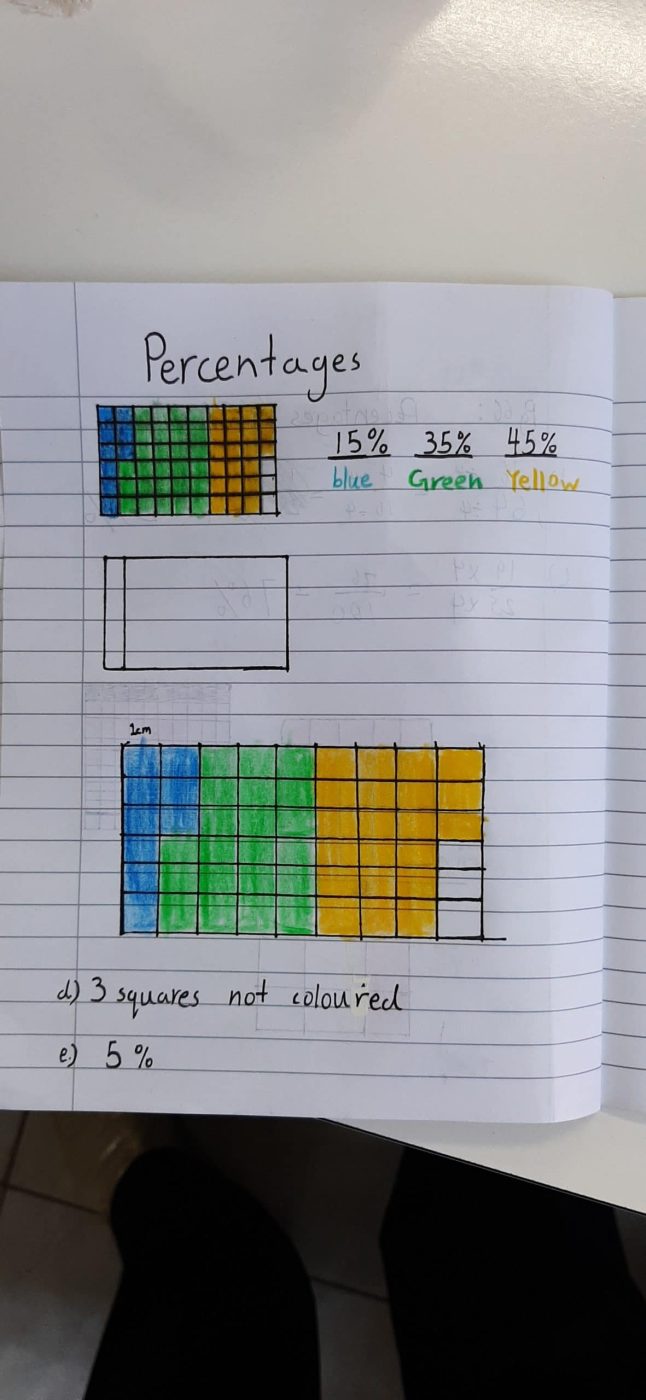 Percentages
15% 35% 45%
blue Green Yellow
1cm
d) 3 squares not coloured
e) 5%